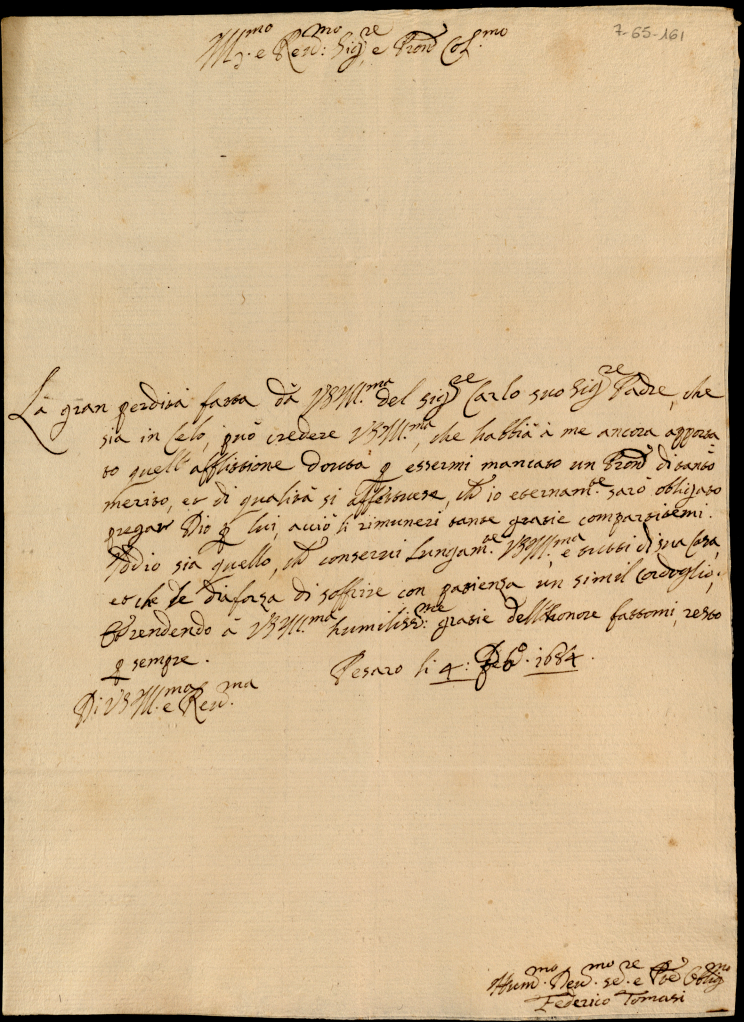 Ill.mo e Rev.mo Sig.re e Pron Col.mo
7-65-161
Là gran perdita fatta dà VS Ill.ma del Sig.re Carlo suo Sig.re Padre, che
sia in Celo, può credere VS Ill.ma, che habbia à me ancora apporta
to quell' afflittione dovuta p essermi mancato un Pron di tanto
merito, et di qualità si affettuose, ch' io eternam.te sarò obligato
pregar Dio p lui, acciò li rimuneri tante gratie compartitemi.
Iddio sia quello, ch' conservi lungam.te VS Ill.ma, e tutti di sua Casa,
et che le dia forza di soffrire con patienza un simil cordoglio.
Et rendendo à VS Ill.ma humiliss.me gratie dell'honore fattomi, resto
p sempre.
Pesaro li 4: Feb.o 1684.
Di VS Ill.ma e Rev.ma
Hum.mo Dev.mo Se.re e Obblig.mo
Federico Tomasi